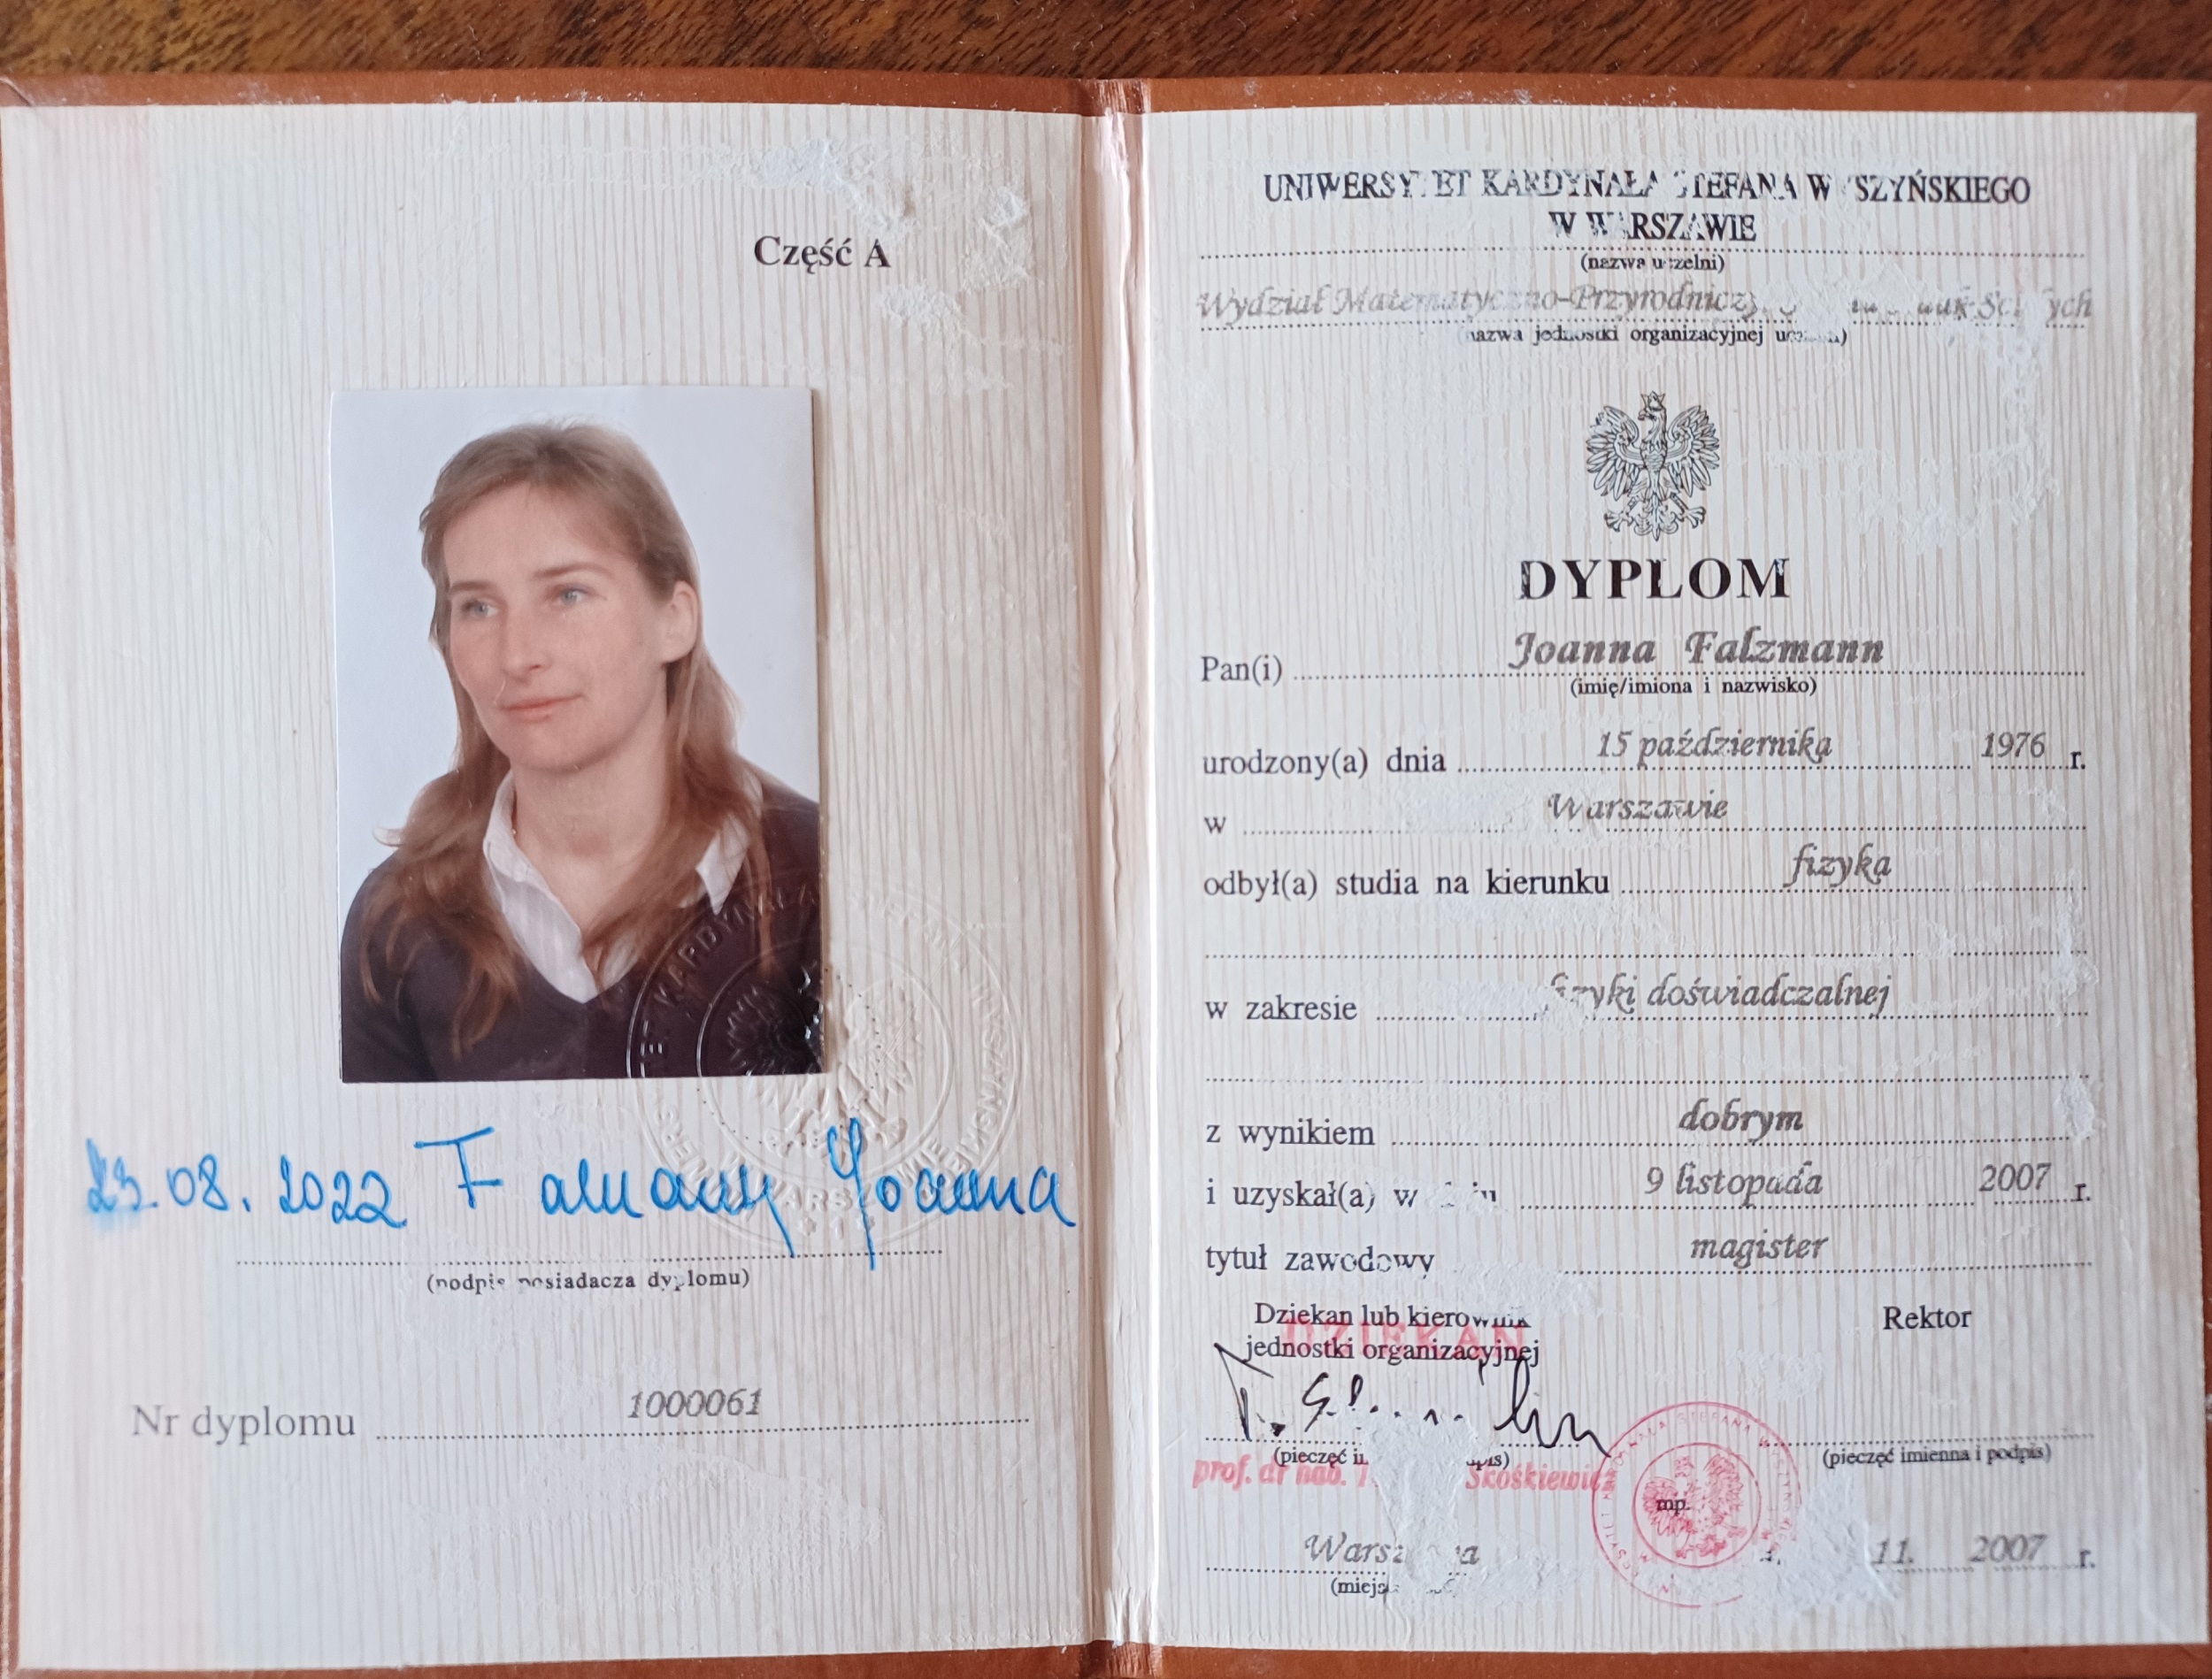 Część A
23.08.2022 Joanna
(podpis posiadacza dyplomu)
Nr dyplomu 1000061
UNIWERSYTET KARDYNAŁA STEFANA WYSZYŃSKIEGO
W WARSZAWIE
(nazwa uczelni)
Wydział Matematyczno-Przyrodniczy Nauk Ścisłych
(nazwa jednostki organizacyjnej uczelni)
DYPLOM
Pan(i) Joanna Falzmann
(imię/imiona i nazwisko)
urodzony(a) dnia 15 października 1976 r.
w Warszawie
odbył(a) studia na kierunku fizyka
w zakresie fizyki doświadczalnej
z wynikiem dobrym
i uzyskał(a) w dniu 9 listopada 2007 r.
tytuł zawodowy magister
Dziekan lub kierownik
jednostki organizacyjnej
DZIEKAN
Rektor
(pieczęć podpis)
prof. dr hab. Skośkiewicz
(pieczęć imienna i podpis)
mp.
Warszawa 11. 2007 r.
(miejscowość)